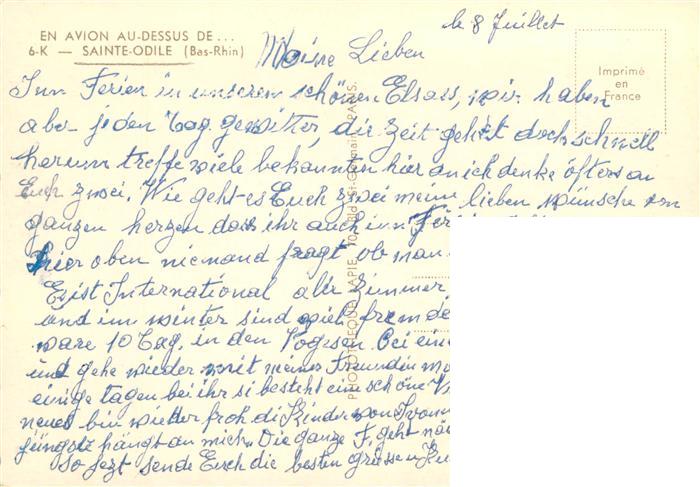 EN AVION AU-DESSUS DE...
6-K — SAINTE-ODILE (Bas-Rhin)
le 8 Juillet
Imprimé
en
France
PHOTOTHEQUE LAPIE, 10, Bld St-Germain, PARIS.
Meine Lieben
Inn Ferien in unserem schönen Elsass, wir haben
aber jeden Tag gewitter, die Zeit geht doch schnell
herum treffe viele bekannten hier an ich denke öfters an
Euch zwei. Wie geht es Euch zwei meine lieben wünsche von
ganzen herzen dass ihr auch inn
hier oben niemand fragt ob man
Es ist International alle Zimmer
und im winter sind viele fremde
ware 10 Tag. in den Vogesen bei
und gehe wieder mit meiner Freundin
einige tagen bei ihr si besteht ein schöne
neues bin wietter froh di Kinder von Ivonn
jüngste hängt an mich. Die ganze F. geht
So jezt sende Euch die besten grüssen